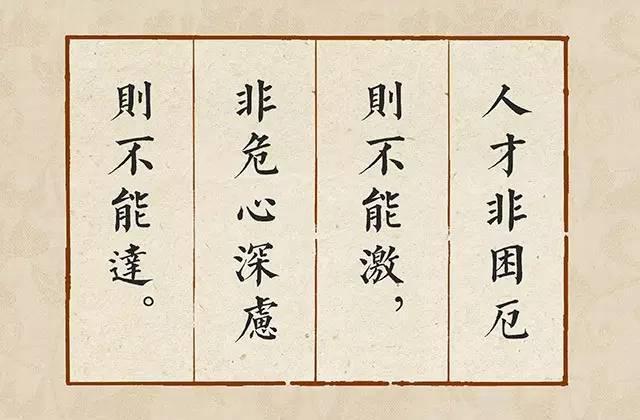 人才非困厄
則不能激，
非危心深慮
則不能達。